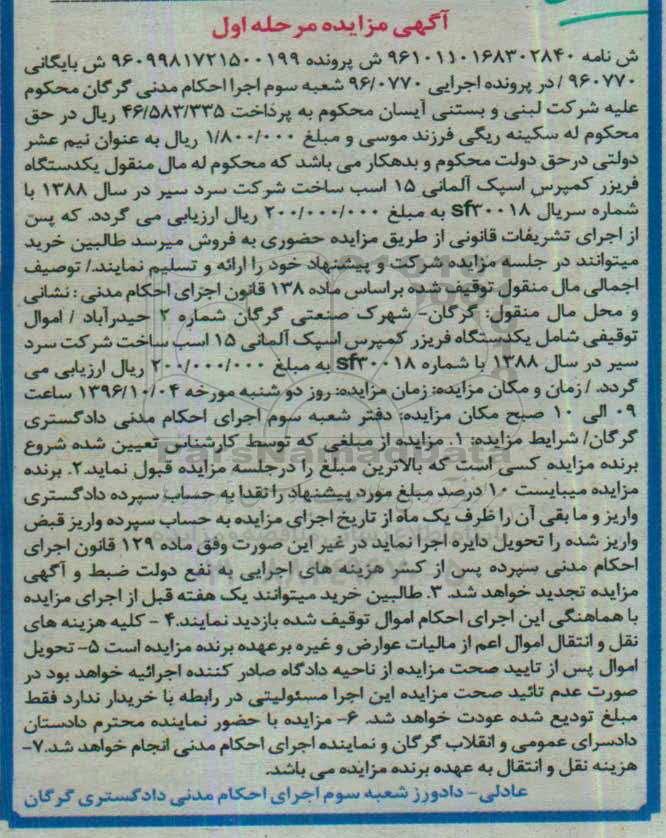 آگهی مزایده مرحله اول
ش نامه ۹۶۱۰۱۱۰۱۶۸۳۰۲۸۴۰ ش پرونده ۹۶۰۹۹۸۱۷۲۱۵۰۰۱۹۹ ش بایگانی
۹۶۰۷۷۰ / در پرونده اجرایی ۹۶/۰۷۷۰ شعبه سوم اجرا احکام مدنی گرگان محکوم
علیه شرکت لبنی و بستنی آیسان محکوم به پرداخت ۴۶/۵۸۳/۳۳۵ ریال در حق
محکوم له سکینه ریگی فرزند موسی و مبلغ ۱/۸۰۰/۰۰۰ ریال به عنوان نیم عشر
دولتی درحق دولت محکوم و بدهکار می باشد که محکوم له مال منقول یکدستگاه
فریزر کمپرس اسپک آلمانی ۱۵ اسب ساخت شرکت سرد سیر در سال ۱۳۸۸ با
شماره سریال sf۳۰۰۱۸ به مبلغ ۲۰۰/۰۰۰/۰۰۰ ریال ارزیابی می گردد. که پس
از اجرای تشریفات قانونی از طریق مزایده حضوری به فروش میرسد طالبین خرید
میتوانند در جلسه مزایده شرکت و پیشنهاد خود را ارائه و تسلیم نمایند./ توصیف
اجمالی مال منقول توقیف شده براساس ماده ۱۳۸ قانون اجرای احکام مدنی : نشانی
و محل مال منقول: گرگان- شهرک صنعتی گرگان شماره ۲ حیدرآباد / اموال
توقیفی شامل یکدستگاه فریزر کمپرس اسپک آلمانی ۱۵ اسب ساخت شرکت سرد
سیر در سال ۱۳۸۸ با شماره sf۳۰۰۱۸ به مبلغ ۲۰۰/۰۰۰/۰۰۰ ریال ارزیابی می
گردد. / زمان و مکان مزایده: زمان مزایده: روز دو شنبه مورخه ۱۳۹۶/۱۰/۰۴ ساعت
۰۹ الی ۱۰ صبح مکان مزایده: دفتر شعبه سوم اجرای احکام مدنی دادگستری
گرگان/ شرایط مزایده: ۱. مزایده از مبلغی که توسط کارشناس تعیین شده شروع
برنده مزایده کسی است که بالاترین مبلغ را درجلسه مزایده قبول نماید.۲. برنده
مزایده میبایست ۱۰ درصد مبلغ مورد پیشنهاد را نقدا به حساب سپرده دادگستری
واریز و ما بقی آن را ظرف یک ماه از تاریخ اجرای مزایده به حساب سپرده واریز قبض
واریز شده را تحویل دایره اجرا نماید در غیر این صورت وفق ماده ۱۲۹ قانون اجرای
احکام مدنی سپرده پس از کسر هزینه های اجرایی به نفع دولت ضبط و آگهی
مزایده تجدید خواهد شد. ۳. طالبین خرید میتوانند یک هفته قبل از اجرای مزایده
با هماهنگی این اجرای احکام اموال توقیف شده بازدید نمایند.۴ - کلیه هزینه های
نقل و انتقال اموال اعم از مالیات عوارض و غیره برعهده برنده مزایده است ۵- تحویل
اموال پس از تایید صحت مزایده از ناحیه دادگاه صادر کننده اجرائیه خواهد بود در
صورت عدم تائید صحت مزایده این اجرا مسئولیتی در رابطه با خریدار ندارد فقط
مبلغ تودیع شده عودت خواهد شد. ۶- مزایده با حضور نماینده محترم دادستان
دادسرای عمومی و انقلاب گرگان و نماینده اجرای احکام مدنی انجام خواهد شد.۷-
هزینه نقل و انتقال به عهده برنده مزایده می باشد.
عادلی- دادورز شعبه سوم اجرای احکام مدنی دادگستری گرگان
ParsNamadData